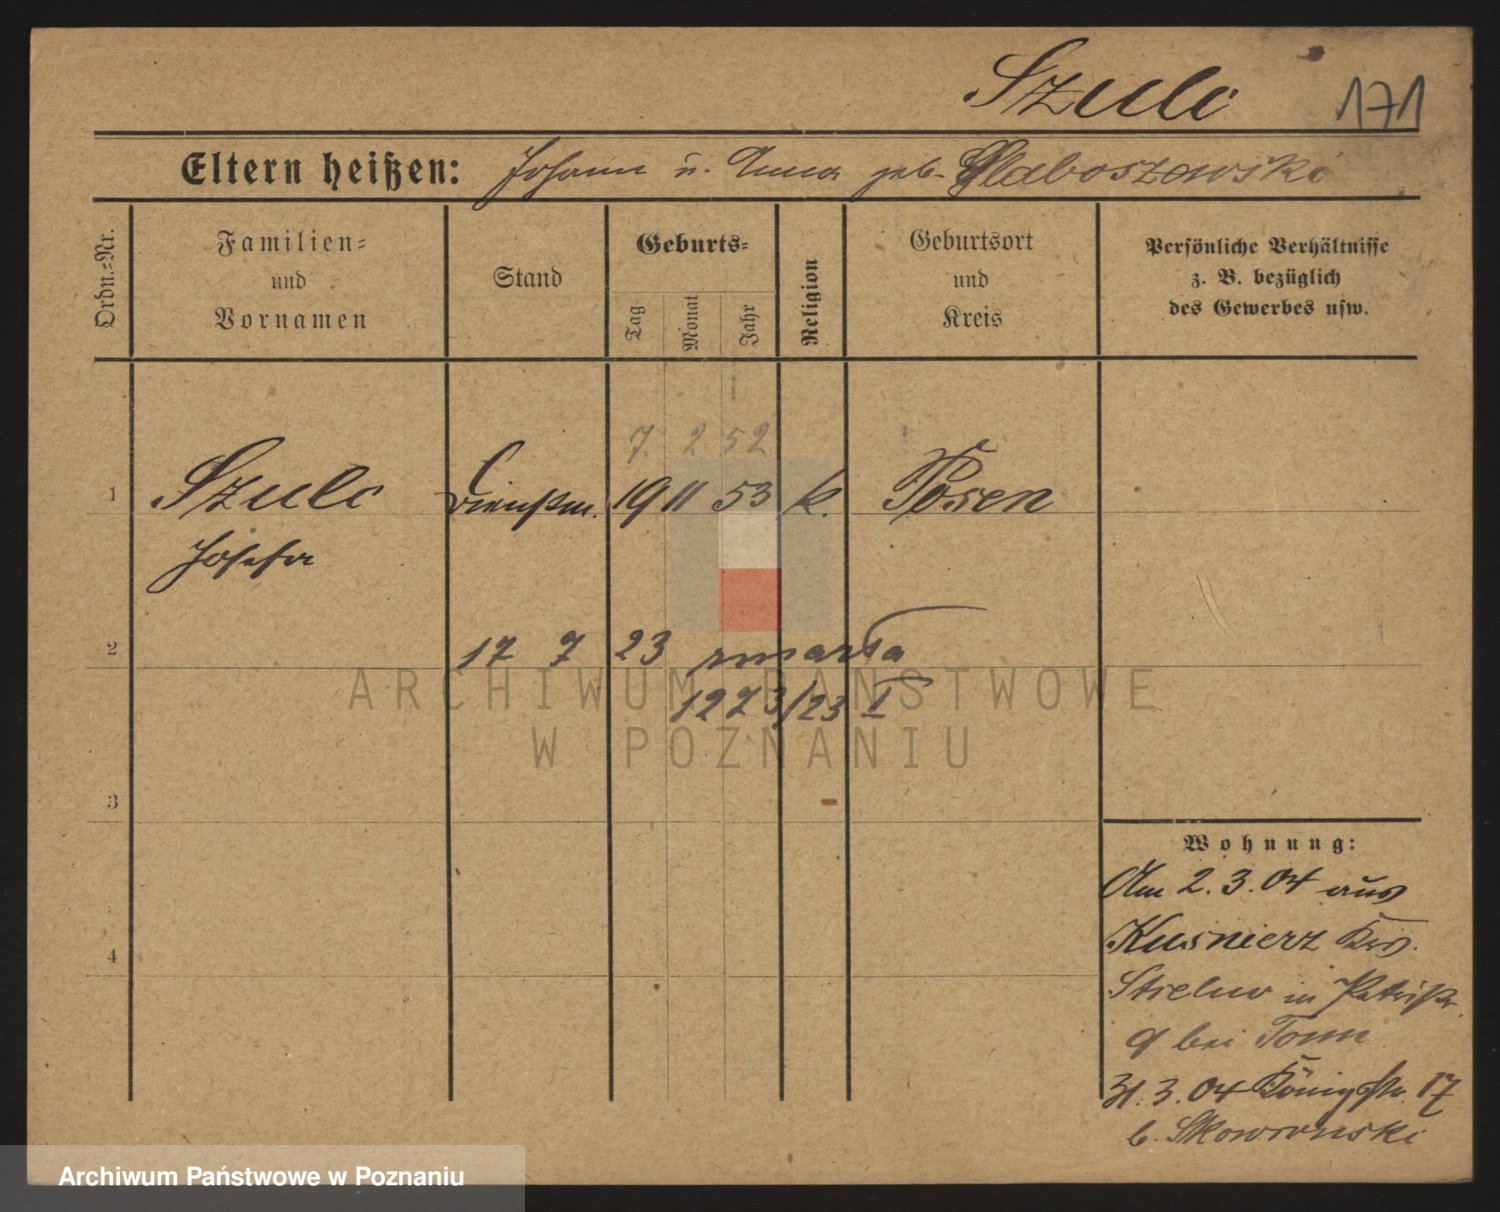 Szulc 171
Eltern heißen: Johann u. Anna geb. Glaboszewski
Ordn.=Nr.
Familien=
und
Vornamen
Stand
Geburts=
Tag
Monat
Jahr
Religion
Geburtsort
und
Kreis
Persönliche Verhältnisse
z. B. bezüglich
des Gewerbes usw.
7 2 52
1 Szulc Dienstm. 19 11 53 k. Posen
Josefa
2 17 7 23 zmarła
1273/23 I
ARCHIWUM PAŃSTWOWE
W POZNANIU
3
4
Wohnung:
Am 2.3.04 aus
Kusnierz Krs.
Strelno in Patristr.
9 bei Tomm
31.3.04 Königstr. 17
b. Skowronski
Archiwum Państwowe w Poznaniu